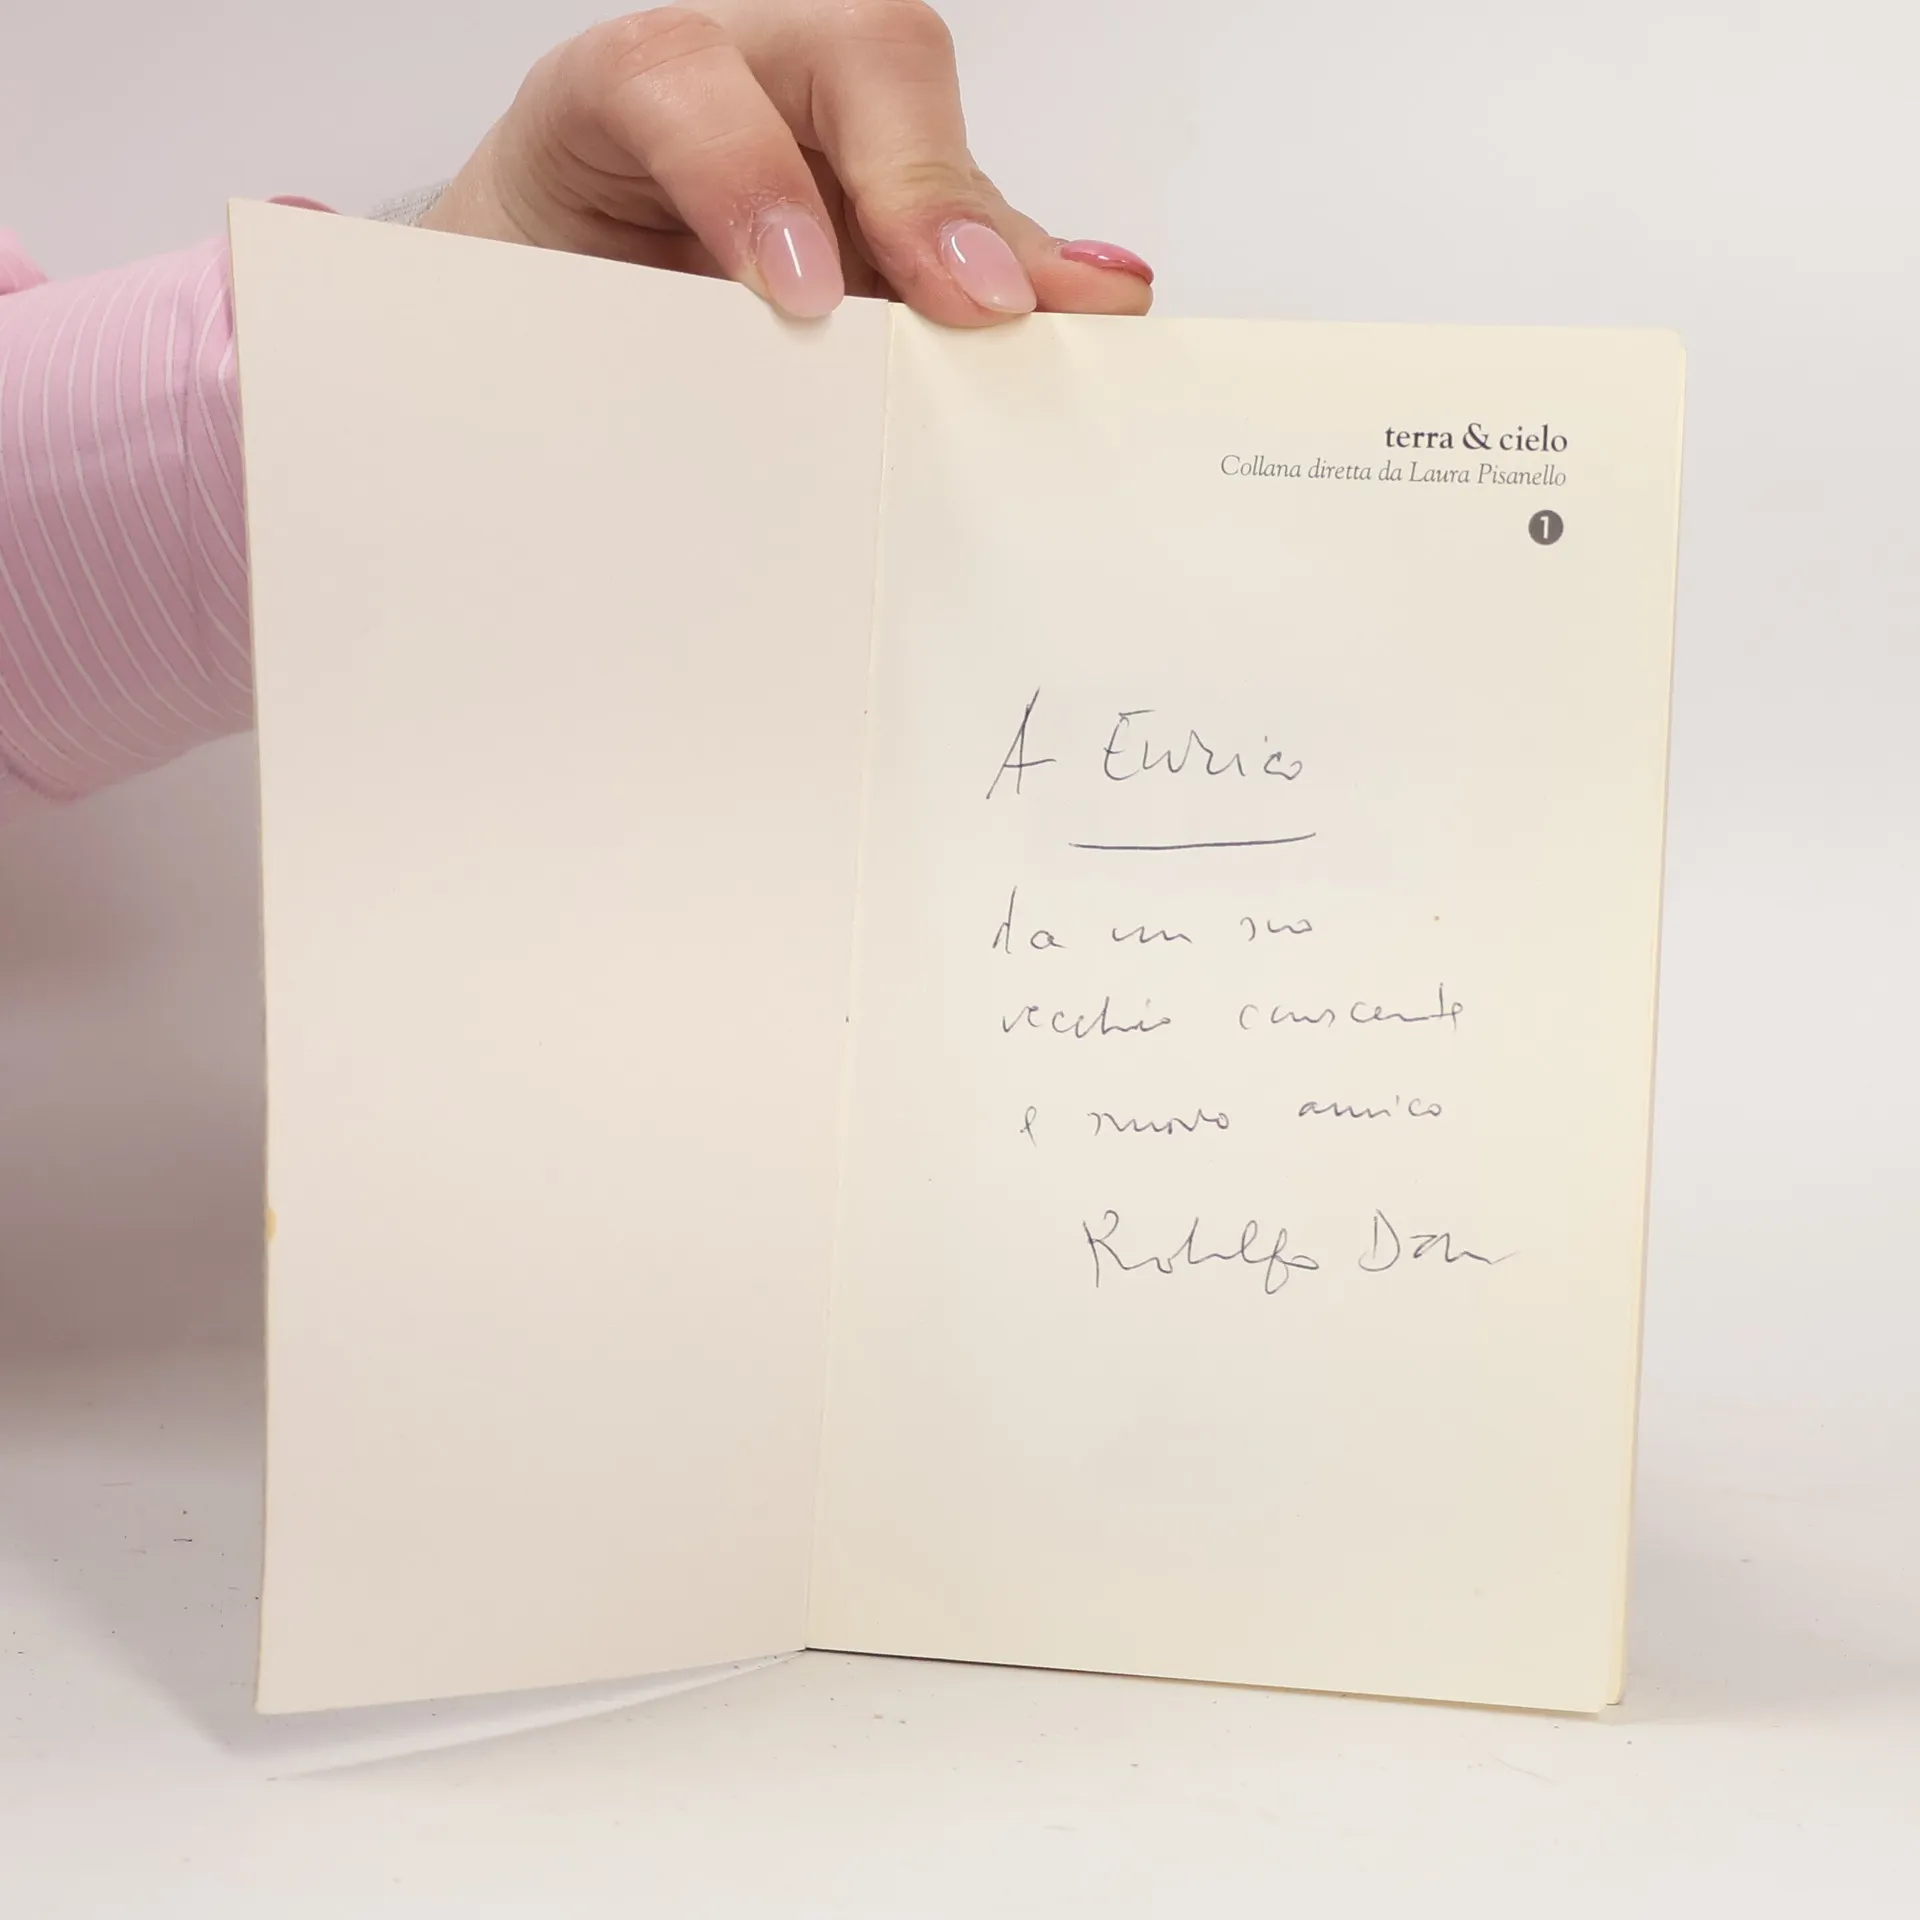 terra & cielo
Collana diretta da Laura Pisanello
1
A Enrico
da un suo
vecchio conoscente
e nuovo amico
Rodolfo